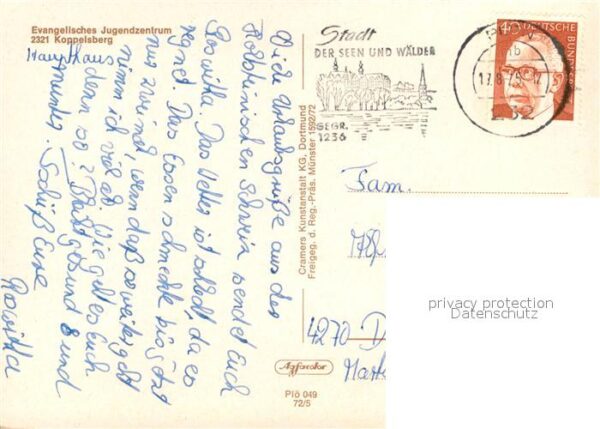 Evangelisches Jugendzentrum
2321 Koppelsberg
Haupthaus
Viele Urlaubsgrüße aus der
Holsteinischen Schweiz sendet Euch
Roswitha. Das Wetter ist schlecht, da es
regnet. Das Essen schmeckte bis jetzt
nur zweimal, wenn daß so weitergeht
nimm ich viel ab. Wie geht es Euch
denn so? Bleibt gesund & und
munter. Tschüß Eure
Roswitha
Cramers Kunstanstalt KG, Dortmund
Freigeg. d. Reg.-Präs. Münster 1592/72
Stadt
DER SEEN UND WÄLDER
GEGR.
1236
17.8.75
40
DEUTSCHE BUNDESPOST
Fam.
4270 D
Agfacolor
Plö 049
72/5
privacy protection
Datenschutz